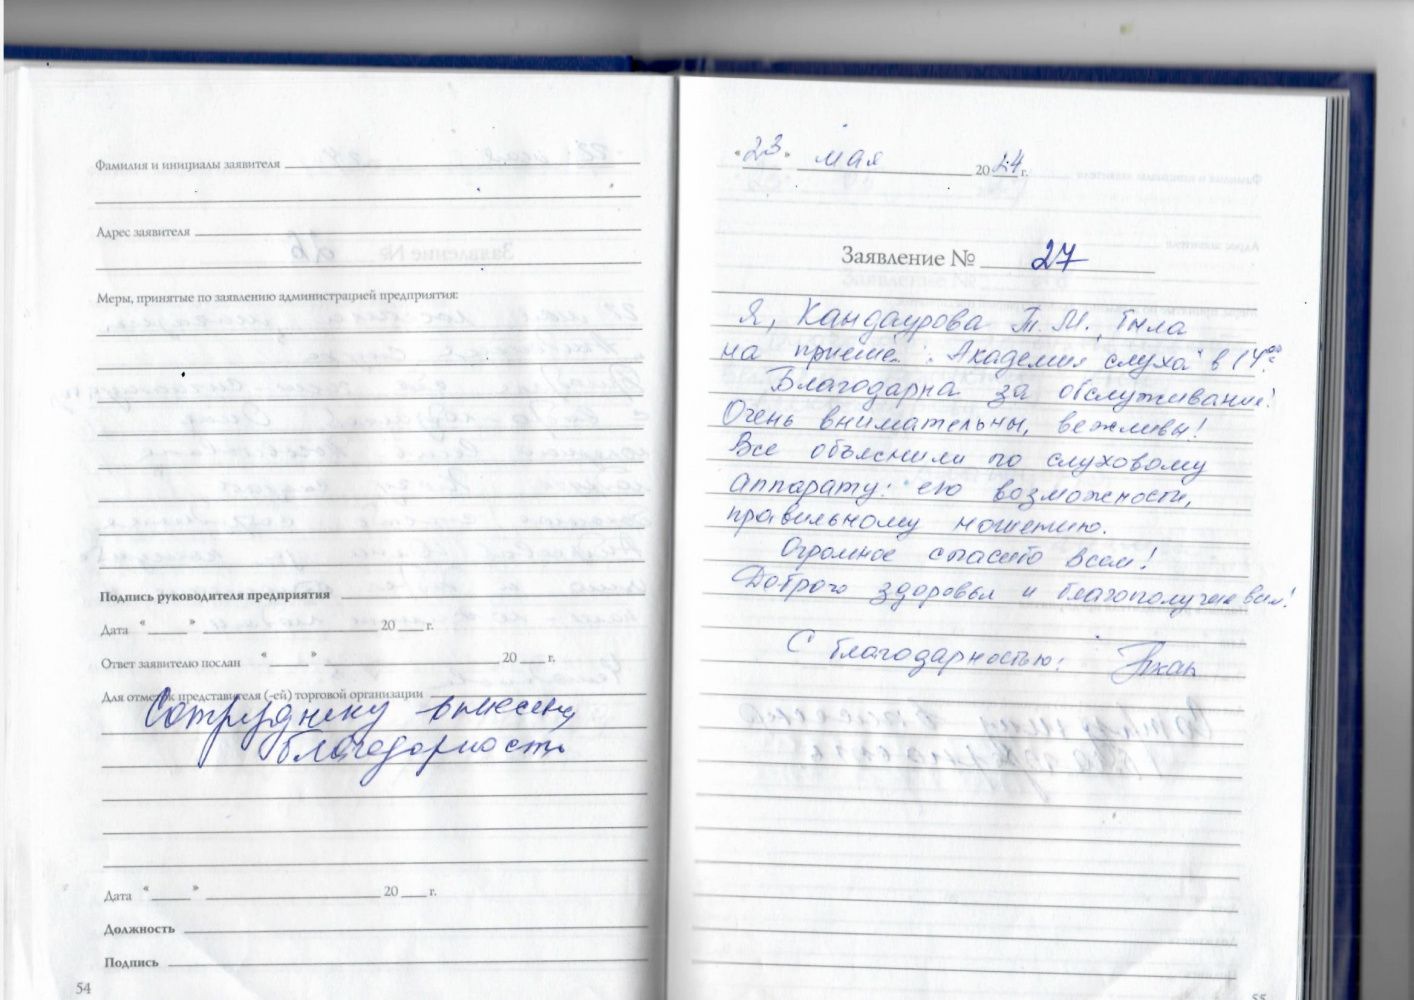 Фамилия и инициалы заявителя
Адрес заявителя
Меры, принятые по заявлению администрацией предприятия:
Подпись руководителя предприятия
Дата "___" ___ 20 ___ г.
Ответ заявителю послан "___" ___ 20 ___ г.
Для отметок представителя (-ей) торговой организации
Сотруднику вынесена
благодарность
Дата "___" ___ 20 ___ г.
Должность
Подпись
54
"23" мая 2024 г.
Заявление № 27
Я, Кандаурова Т. М., была
на приёме: "Академия слуха" в 14⁰⁰.
Благодарна за обслуживание!
Очень внимательны, вежливы!
Все объяснили по слуховому
аппарату: его возможности,
правильному ношению.
Огромное спасибо всем!
Доброго здоровья и благополучия вам!
С благодарностью:
55